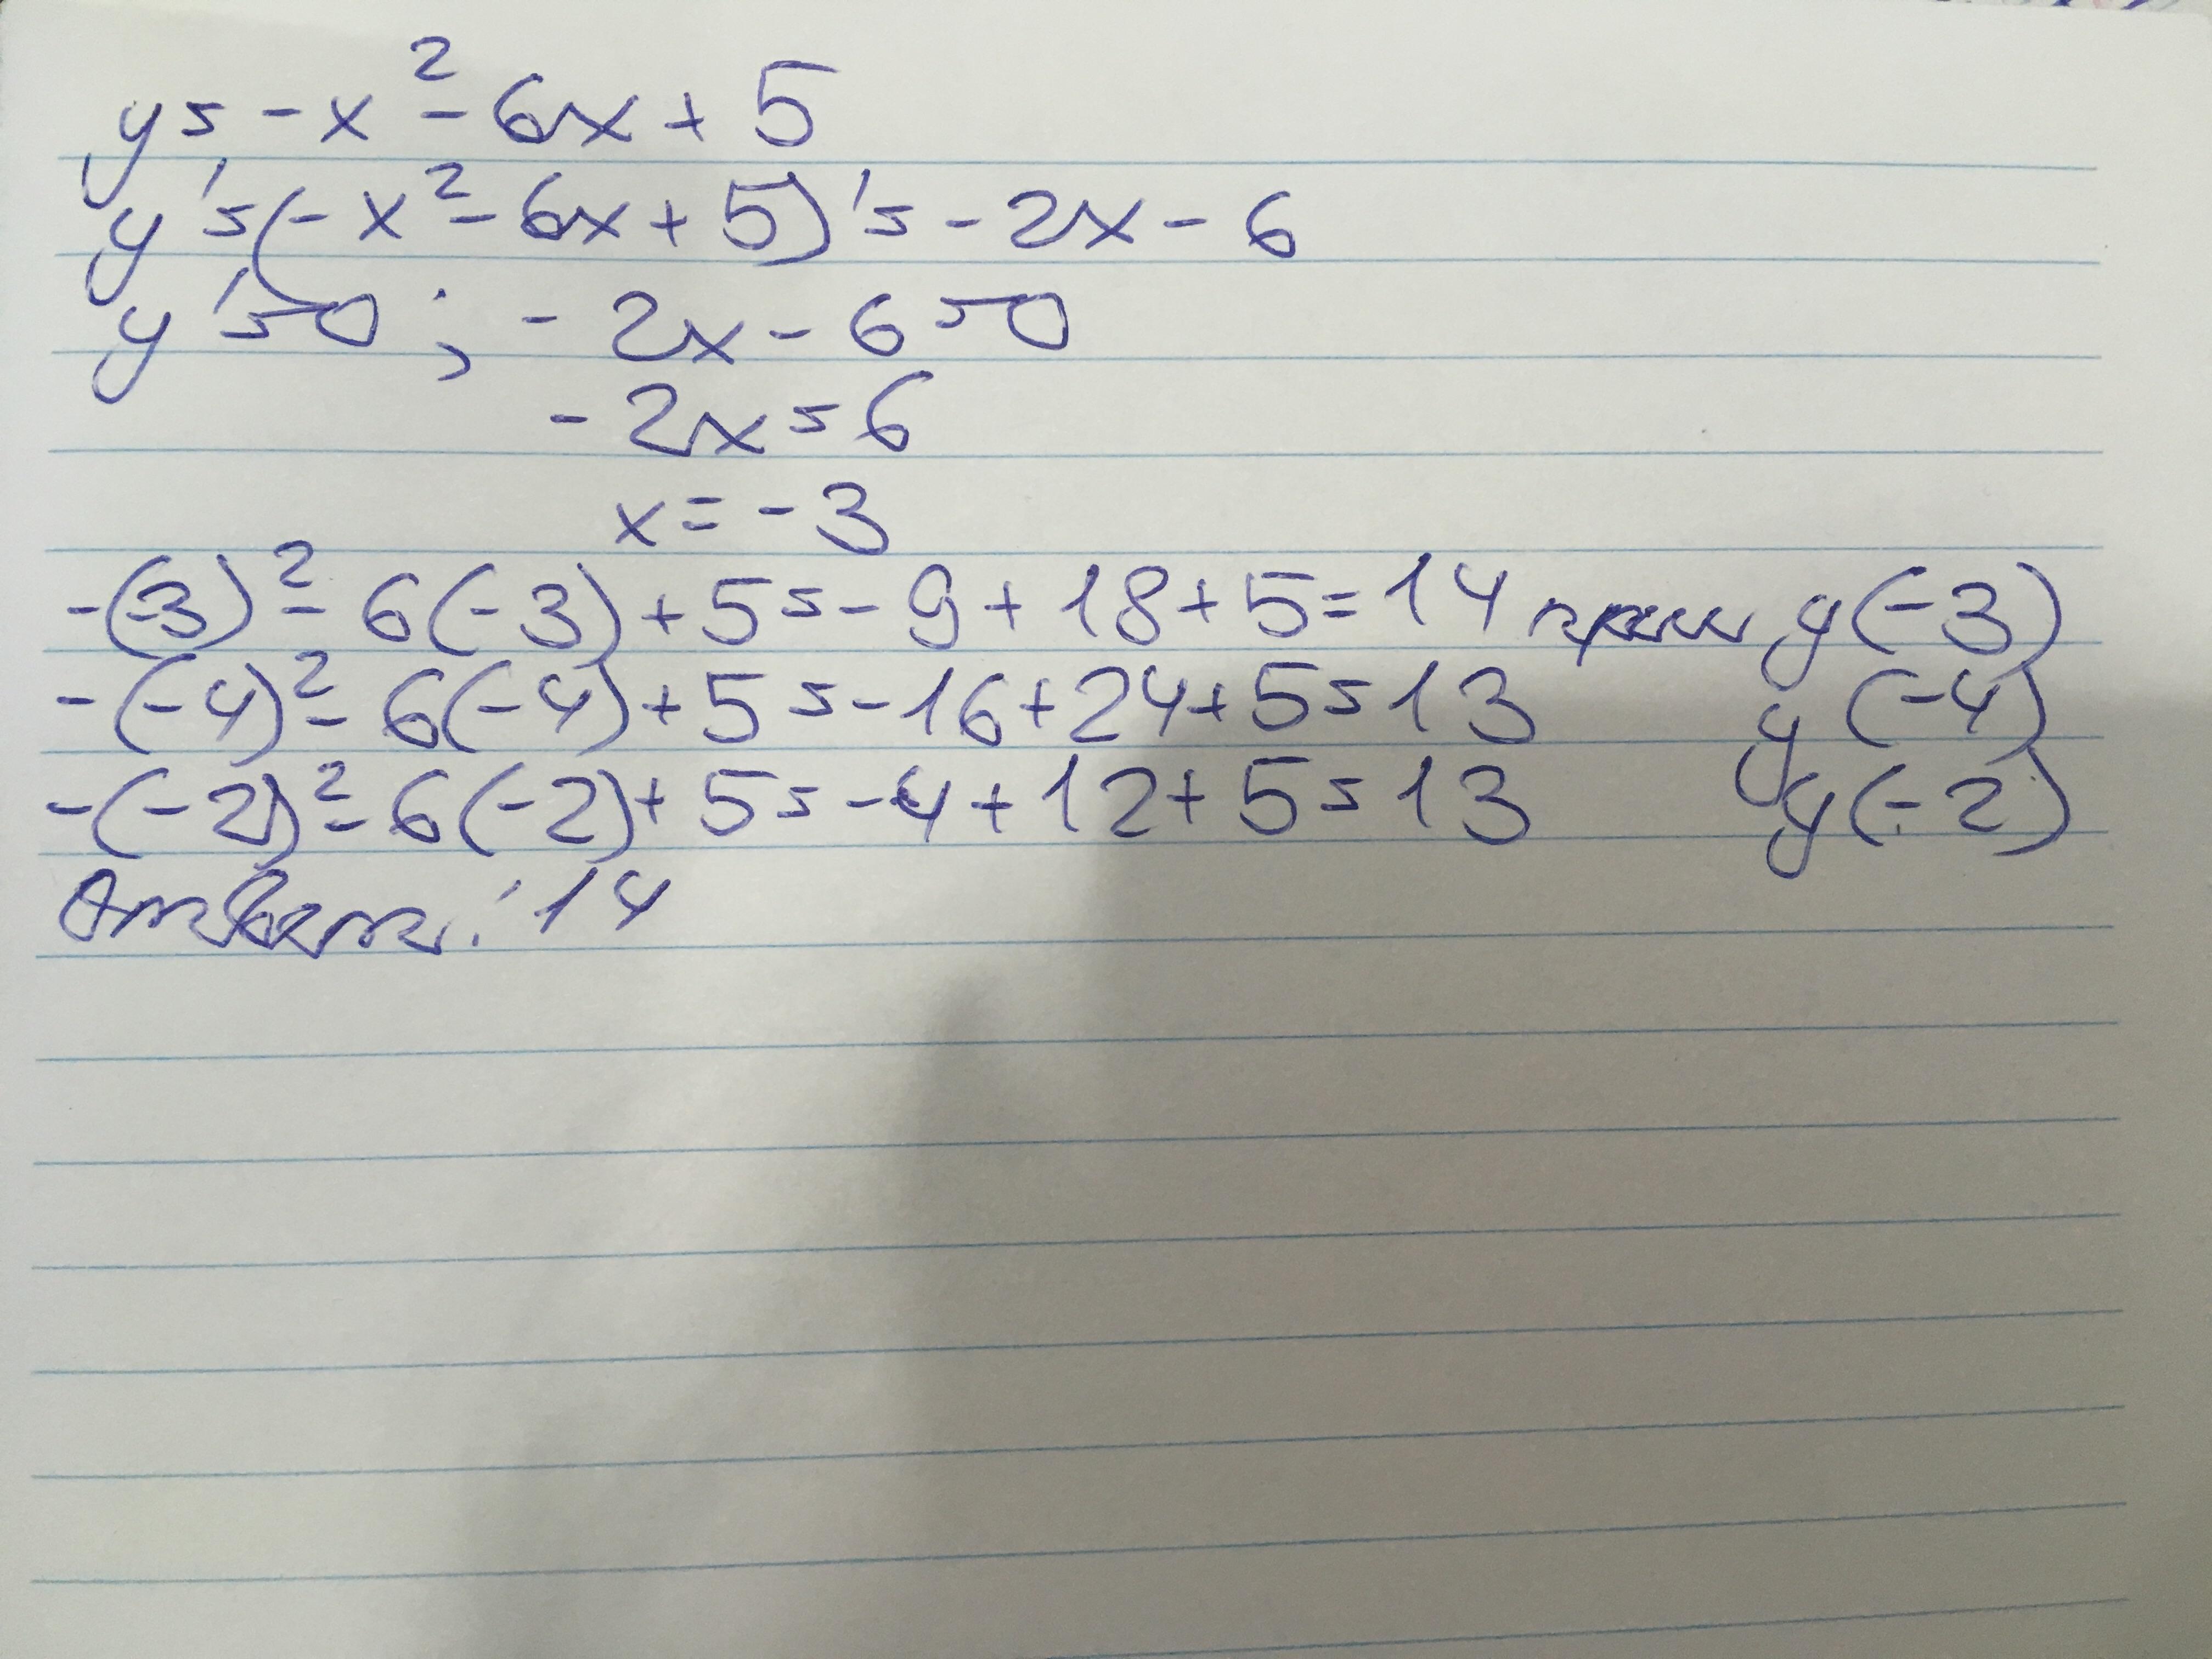 y = -x² - 6x + 5
y' = (-x² - 6x + 5)' = -2x - 6
y' = 0 ; -2x - 6 = 0
-2x = 6
x = -3
-(-3)² - 6(-3) + 5 = -9 + 18 + 5 = 14 при y(-3)
-(-4)² - 6(-4) + 5 = -16 + 24 + 5 = 13 y(-4)
-(-2)² - 6(-2) + 5 = -4 + 12 + 5 = 13 y(-2)
Ответ: 14